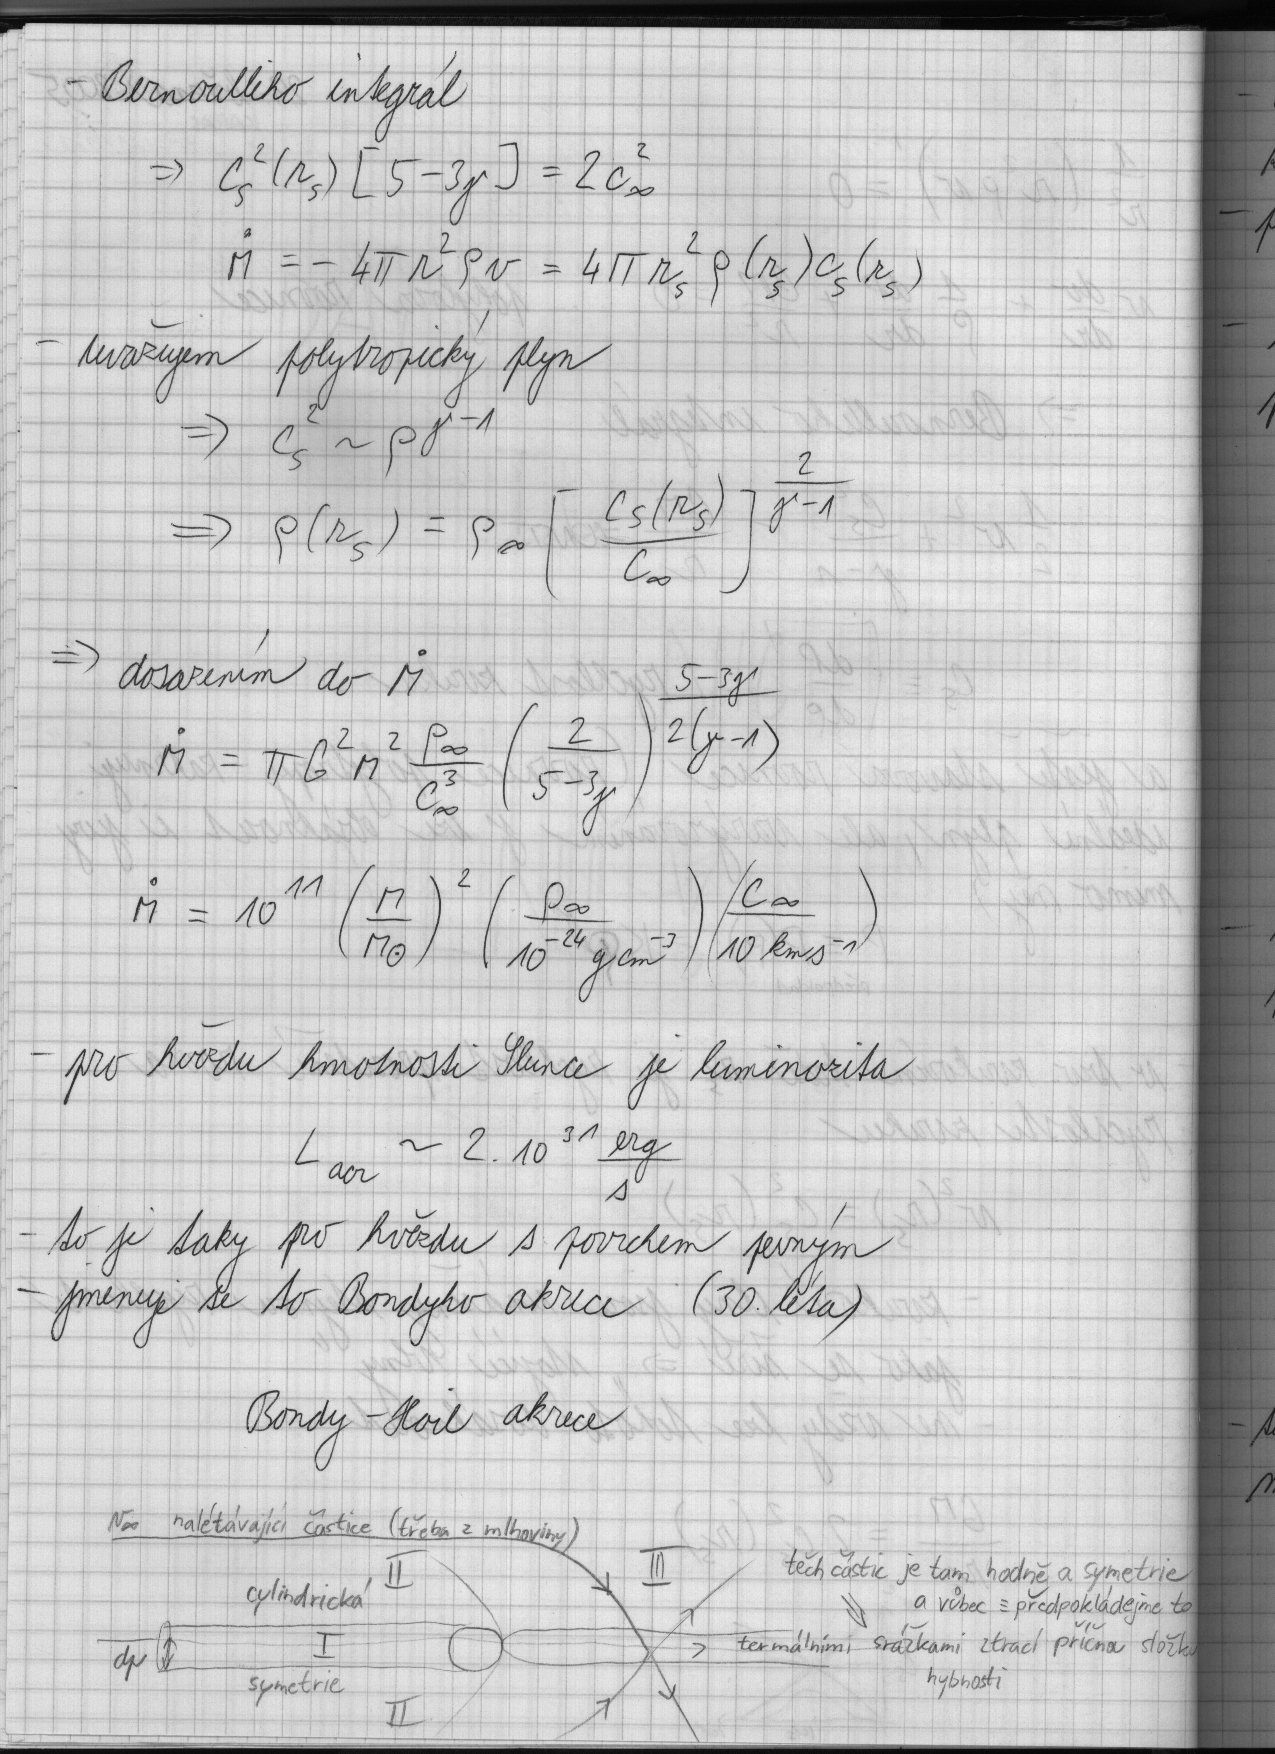 - Bernoulliho integrál
⇒ c_s²(r_s) [5-3γ] = 2c_∞²
Ṁ = - 4πr²ρv = 4πr_s² ρ(r_s) c_s(r_s)
- uvažujem polytropický plyn
⇒ c_s² ~ ρ^(γ-1)
⇒ ρ(r_s) = ρ_∞ [c_s(r_s) / c_∞]^(2/(γ-1))
⇒ dosazením do Ṁ
Ṁ = πG²M² ρ_∞/c_∞³ (2/(5-3γ))^((5-3γ)/(2(γ-1)))
Ṁ = 10^11 (M/M_⊙)² (ρ_∞ / 10^-24 g cm^-3) (c_∞ / 10 km s^-1)
- pro hvězdu hmotnosti Slunce je luminozita
L_acr ~ 2.10^31 erg/s
- to je taky pro hvězdu s povrchem pevným
- jmenuje se to Bondyho akrece (30. léta)
Bondy - Hoil akrece
v_∞ nalétávající částice (třeba z mlhoviny)
II
III
těch částic je tam hodně a symetrie
a vůbec ≡ předpokládejme to
cylindrická
I
dp
symetrie
⇓ termálními srážkami ztrací příčna složka
hybnosti
II